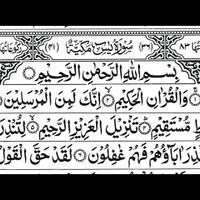 ۸۳ (۳۶) سُوْرَةُ يٰسٓ مَكِّيَّةٌ (۴۱)
بِسْمِ اللّٰهِ الرَّحْمٰنِ الرَّحِيْمِ
وَالْقُرْاٰنِ الْحَكِيْمِ ۙ اِنَّكَ لَمِنَ الْمُرْسَلِيْنَ ۙ
مُّسْتَقِيْمٍ ؕ تَنْزِيْلَ الْعَزِيْزِ الرَّحِيْمِ ۙ لِتُنْذِرَ
اٰبَآؤُهُمْ فَهُمْ غٰفِلُوْنَ لَقَدْ حَقَّ الْقَوْلُ